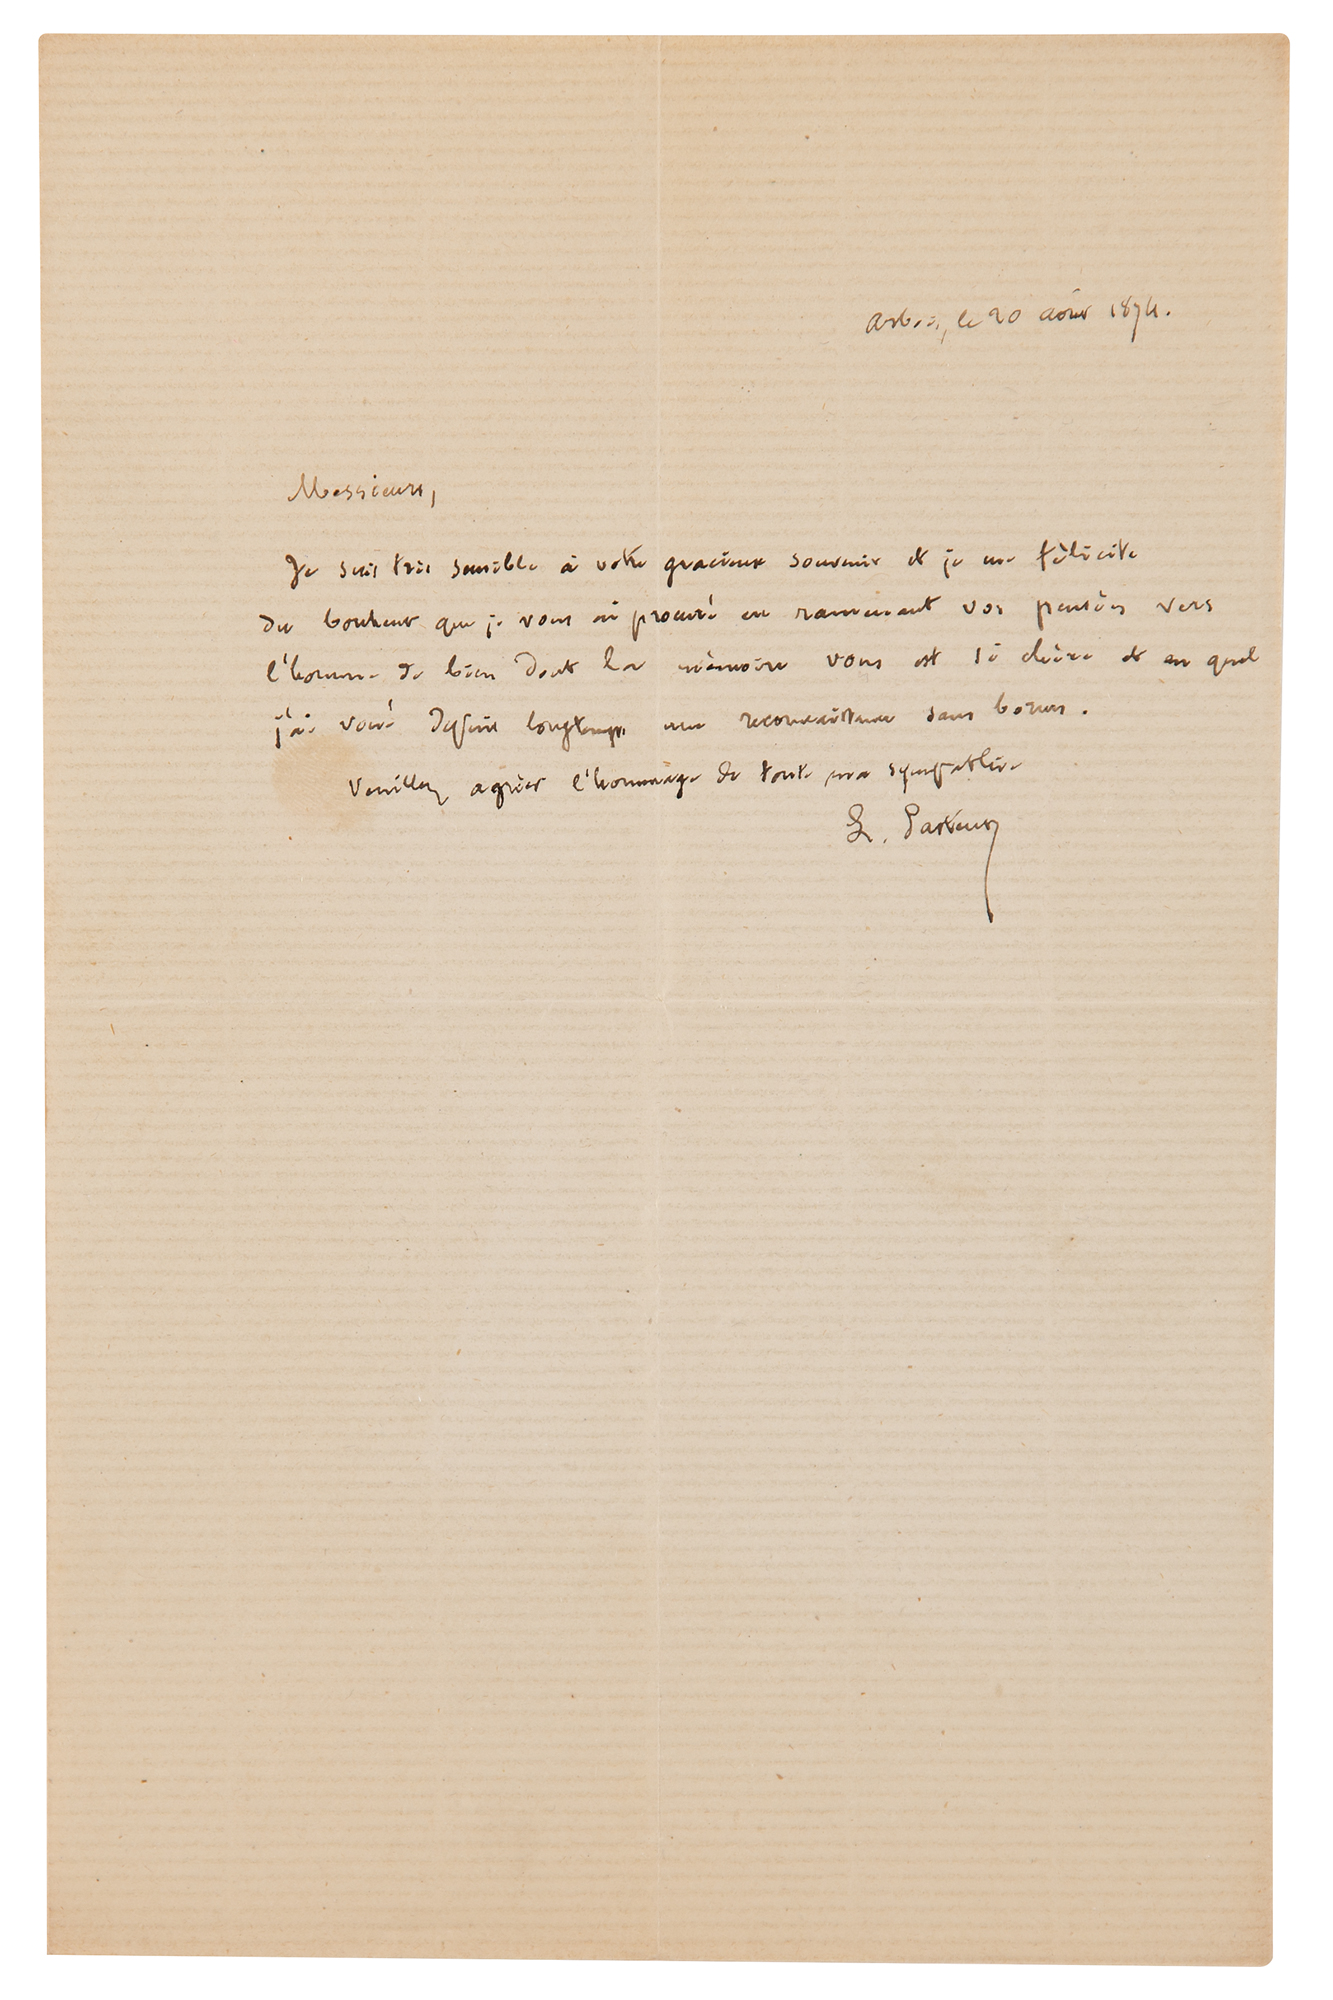 Arbois, le 20 août 1874.
Messieurs,
Je suis très sensible à votre gracieux souvenir et je me félicite
du bonheur que je vous ai procuré en ramenant vos pensées vers
l'homme de bien dont la mémoire vous est si chère et au quel
j'ai voué depuis longtemps une reconnaissance sans bornes.
Veuillez agréer l'hommage de toute ma sympathie
L. Pasteur